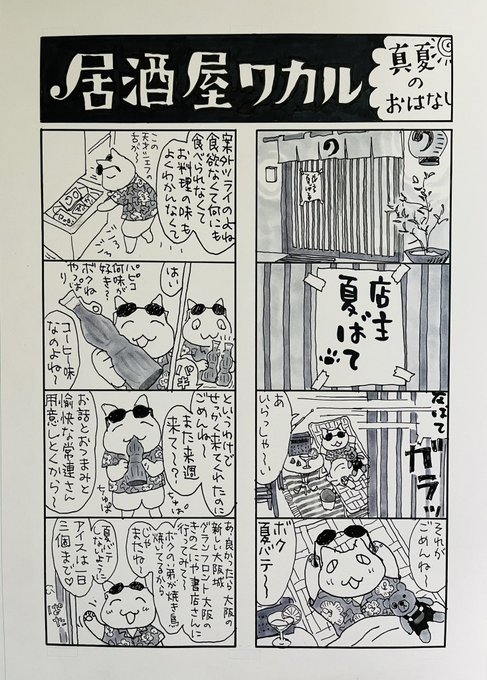 居酒屋ワカル
真夏
の
おはなし
の
店主
夏ばて
なばて
ガラッ
あ
いらっしゃ〜い
それが
ごめんね〜
ボク
夏バテ〜
案外ツライのよね
食欲なくて何にも
食べられなくて
お料理の味も
よくわかんなくて
この
天才シェフの
舌が〜
はい
パキ
パピコ
何味が
好き?
ボクね
やっぱり
コーヒー味
なのよね〜
といつわけで
せっかく来てくれたのに
ごめんね〜
また来週
来て〜?
お話とおつまみと
愉快な常連さん
用意しとくから〜
ちゅぱ
ちゅぱ
あ、良かったら大阪の
新しい大阪城
グランフロント大阪の
きのくにや書店さんに
行ってみて〜
ボクの弟が焼き鳥
焼いてるから
じゃ
またね
夏バテ
しないように
アイスは一日
三個まで♡